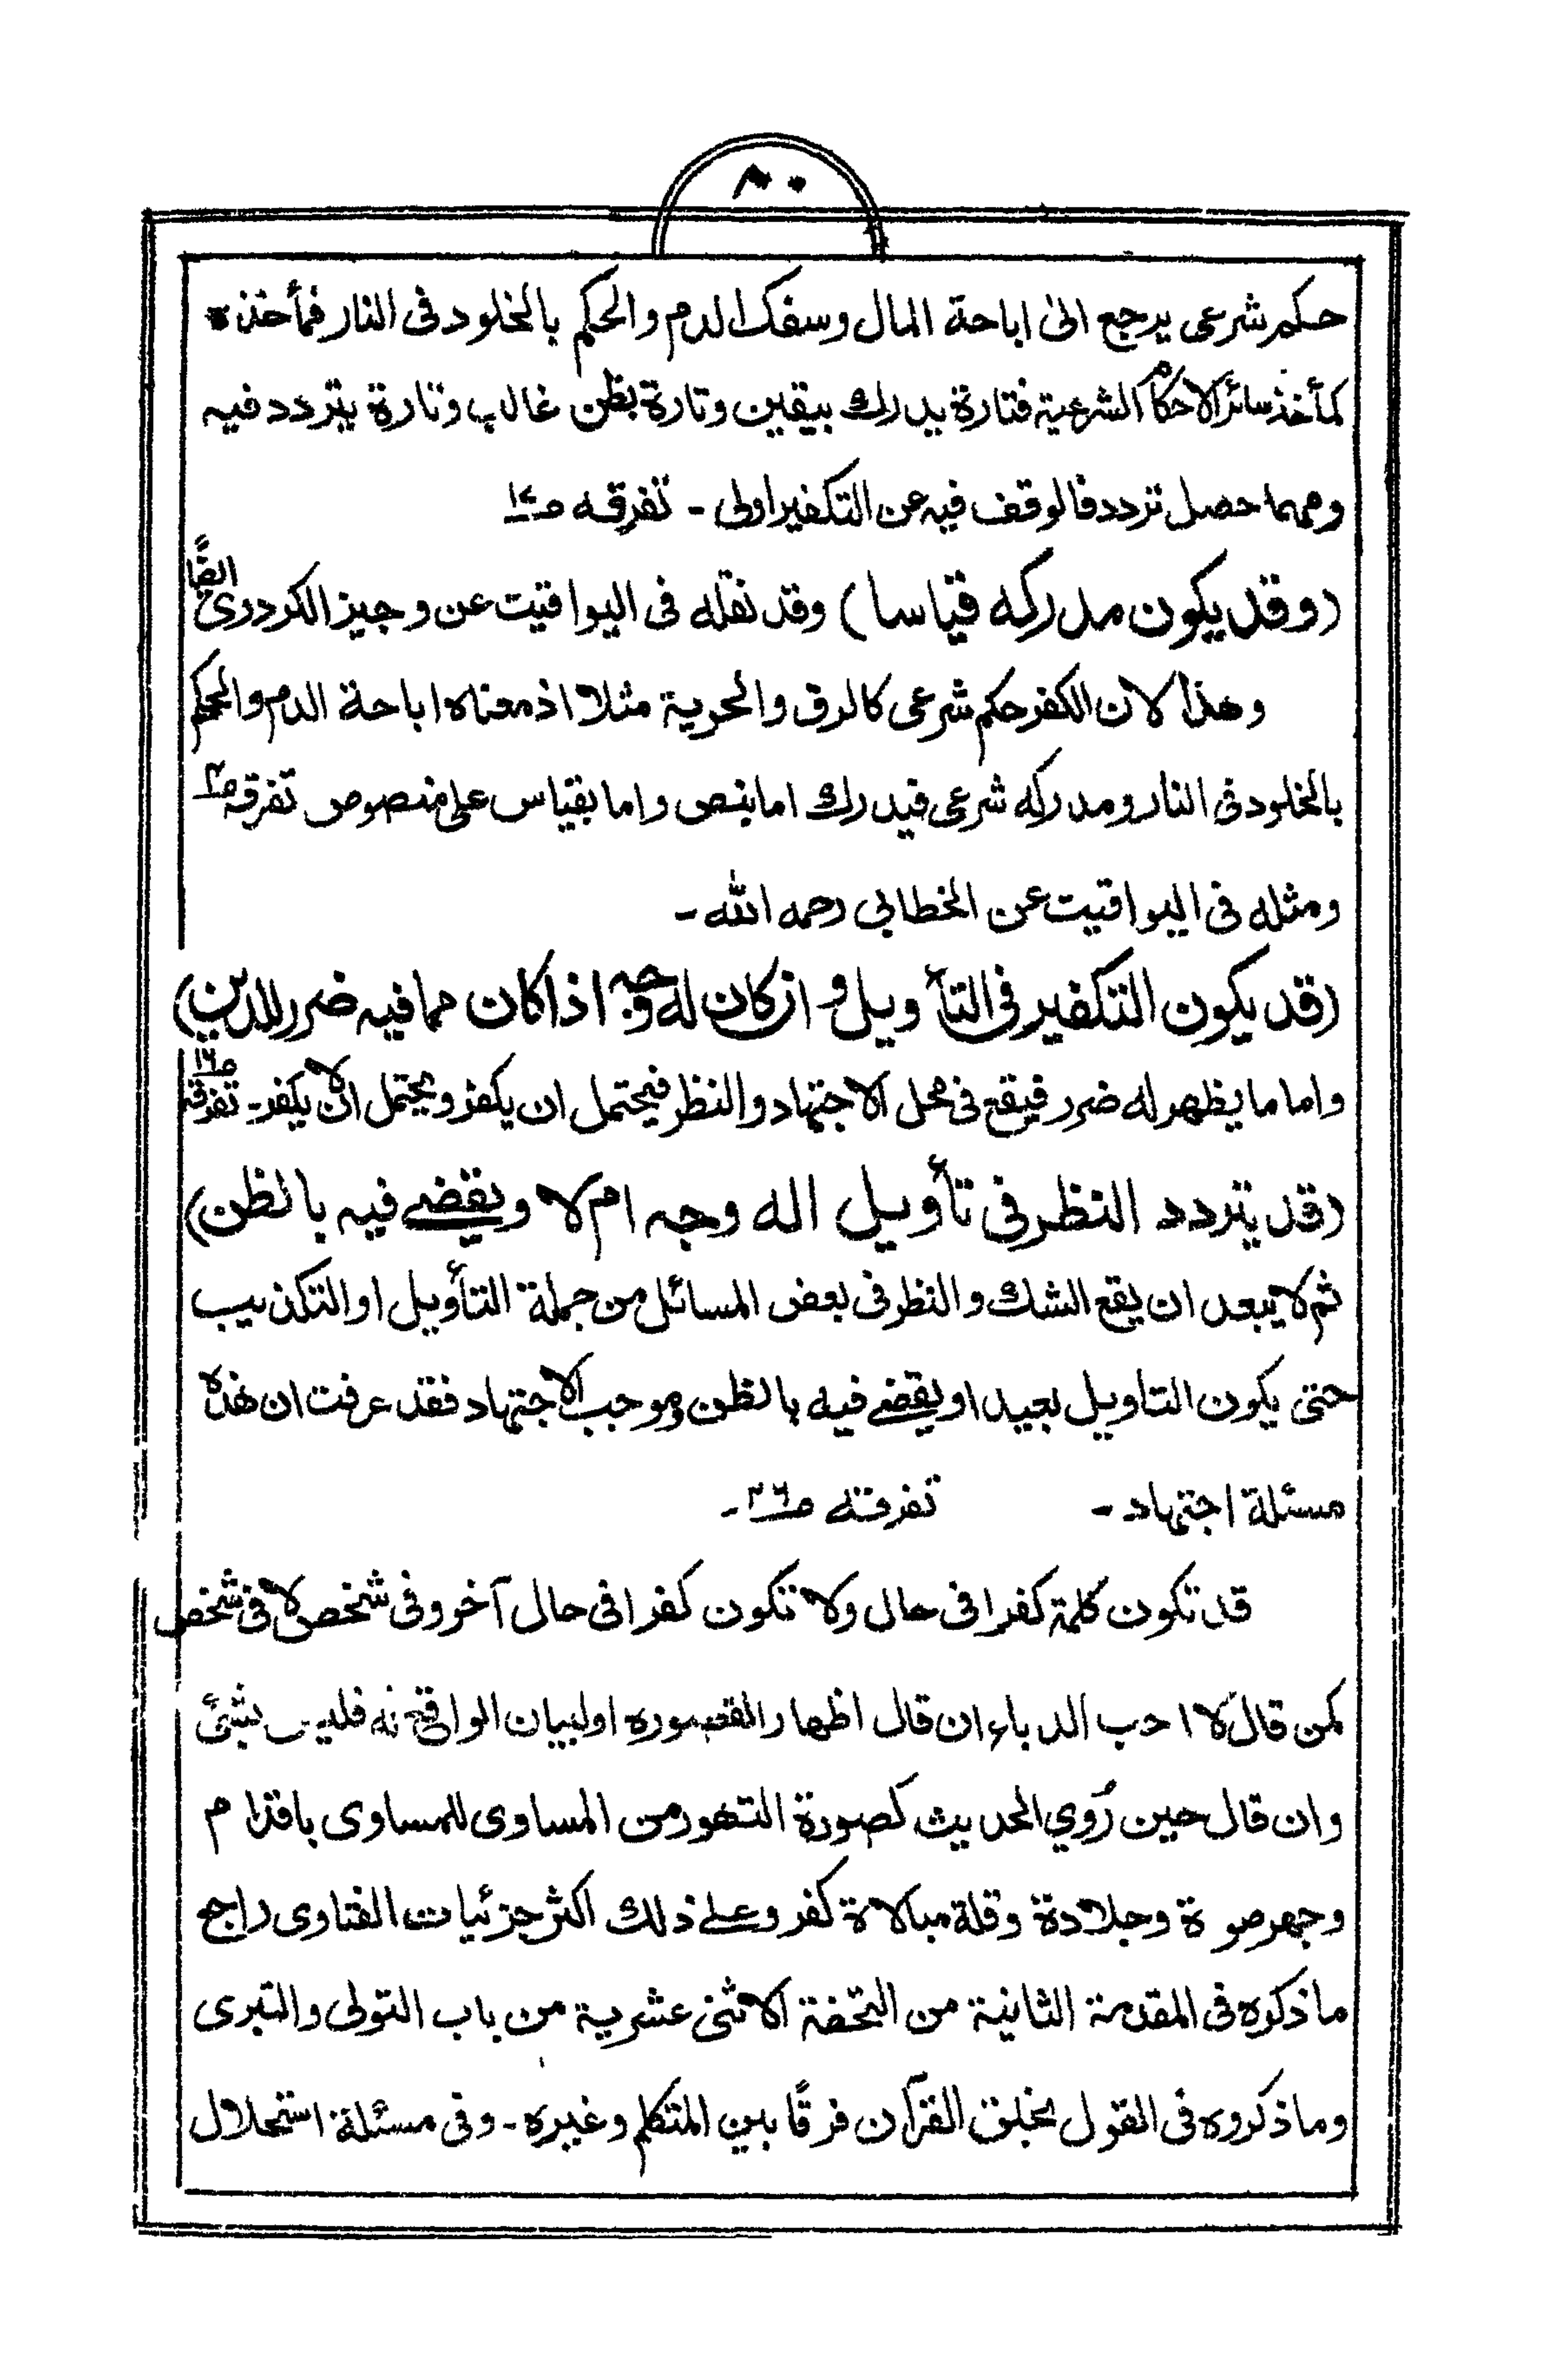 ٨٠
حكم شرعى يرجع الىٰ اباحة المال وسفك الدم والحكم بالخلود فى النار فمأخذه
كمأخذ سائر الاحكام الشرعية فتارة يدرك بيقين وتارة بظن غالب وتارة يتردد فيه
ومهما حصل تردد فالوقف فيه عن التكفير اولى - تفرقه
(وقد يكون مدركه قياسا) وقد نقله فى اليواقيت عن وجيز الكردرى
وهذا لان الكفر حكم شرعى كالرق والحرية مثلا اذ معناه اباحة الدم والحكم
بالخلود فى النار ومدركه شرعى فيدرك اما بنص واما بقياس على منصوص تفرقه
ومثله فى اليواقيت عن الخطابى رحمه الله -
(قد يكون التكفير فى التأويل وان كان له وجه اذا كان مما فيه ضرر للدين)
واما ما يظهر له ضرر فيقع فى محل الاجتهاد والنظر فيحتمل ان يكفر ويحتمل ان لا يكفر - تفرقه ص١٦
(قد يتردد النظر فى تأويل اله وجه ام لا ويقضے فيه بالظن)
ثم لا يبعد ان يقع الشك والنظر فى بعض المسائل من جملة التأويل او التكذيب
حتى يكون التاويل بعيدا ويقضے فيه بالظن وموجب الاجتهاد فقد عرفت ان هذه
مسئلة اجتهاد - تفرقته ص٢٦ -
قد تكون كلمة كفرا فى حال ولا تكون كفرا فى حال آخر وفى شخص لا فى شخص
كمن قال لا احب الدباء ان قال اظهار القصوره او لبيان الواقع فليس بشئ
وان قال حين رُوي الحديث كصورة التهور من المساوى للمساوى باقدام
وجهر صوة وجلادة وقلة مبالاة كفر وعلى ذلك اكثر جزئيات الفتاوى راجع
ما ذكره فى المقدمة الثانية من التحفة الاثنى عشرية من باب التولى والتبرى
وما ذكروه فى القول بخلق القرآن فرقًا بين المتكلم وغيره - وفى مسئلة استحلال